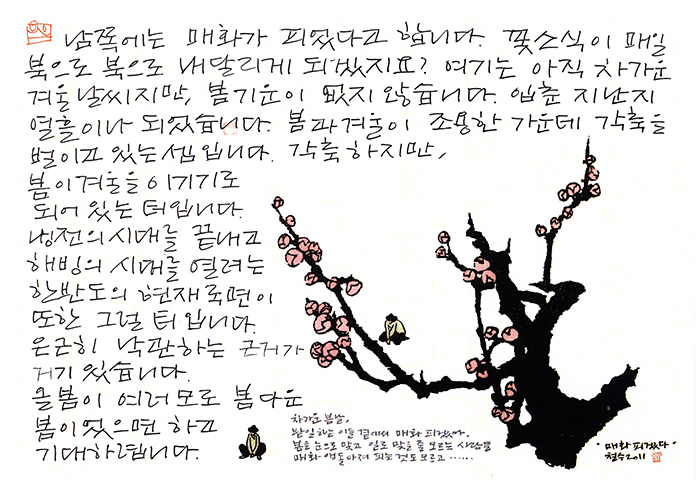 남쪽에는 매화가 피었다고 합니다. 꽃소식이 매일
북으로 북으로 내달리게 되겠지요? 여기는 아직 차가운
겨울 날씨지만, 봄기운이 없지 않습니다. 입춘 지난지
열흘이나 되었습니다. 봄과겨울이 조용한 가운데 각축을
벌이고 있는 셈입니다. 각축하지만,
봄이겨울을 이기기로
되어 있는 터입니다.
냉전의시대를 끝내고
해빙의 시대를 열려는
한반도의 현재국면이
또한 그럴 터입니다.
은근히 낙관하는 근거가
거기 있습니다.
올봄이 여러모로 봄다운
봄이었으면 하고
기대하렵니다.
차가운 봄날,
일하는 이들 곁에서 매화 피겠다.
봄을 눈으로 맞고 일로 맞을 줄 모르는 사람들
매화 피는 것도 모르고 ......
· 매화 피겠다 ·
철수 2011